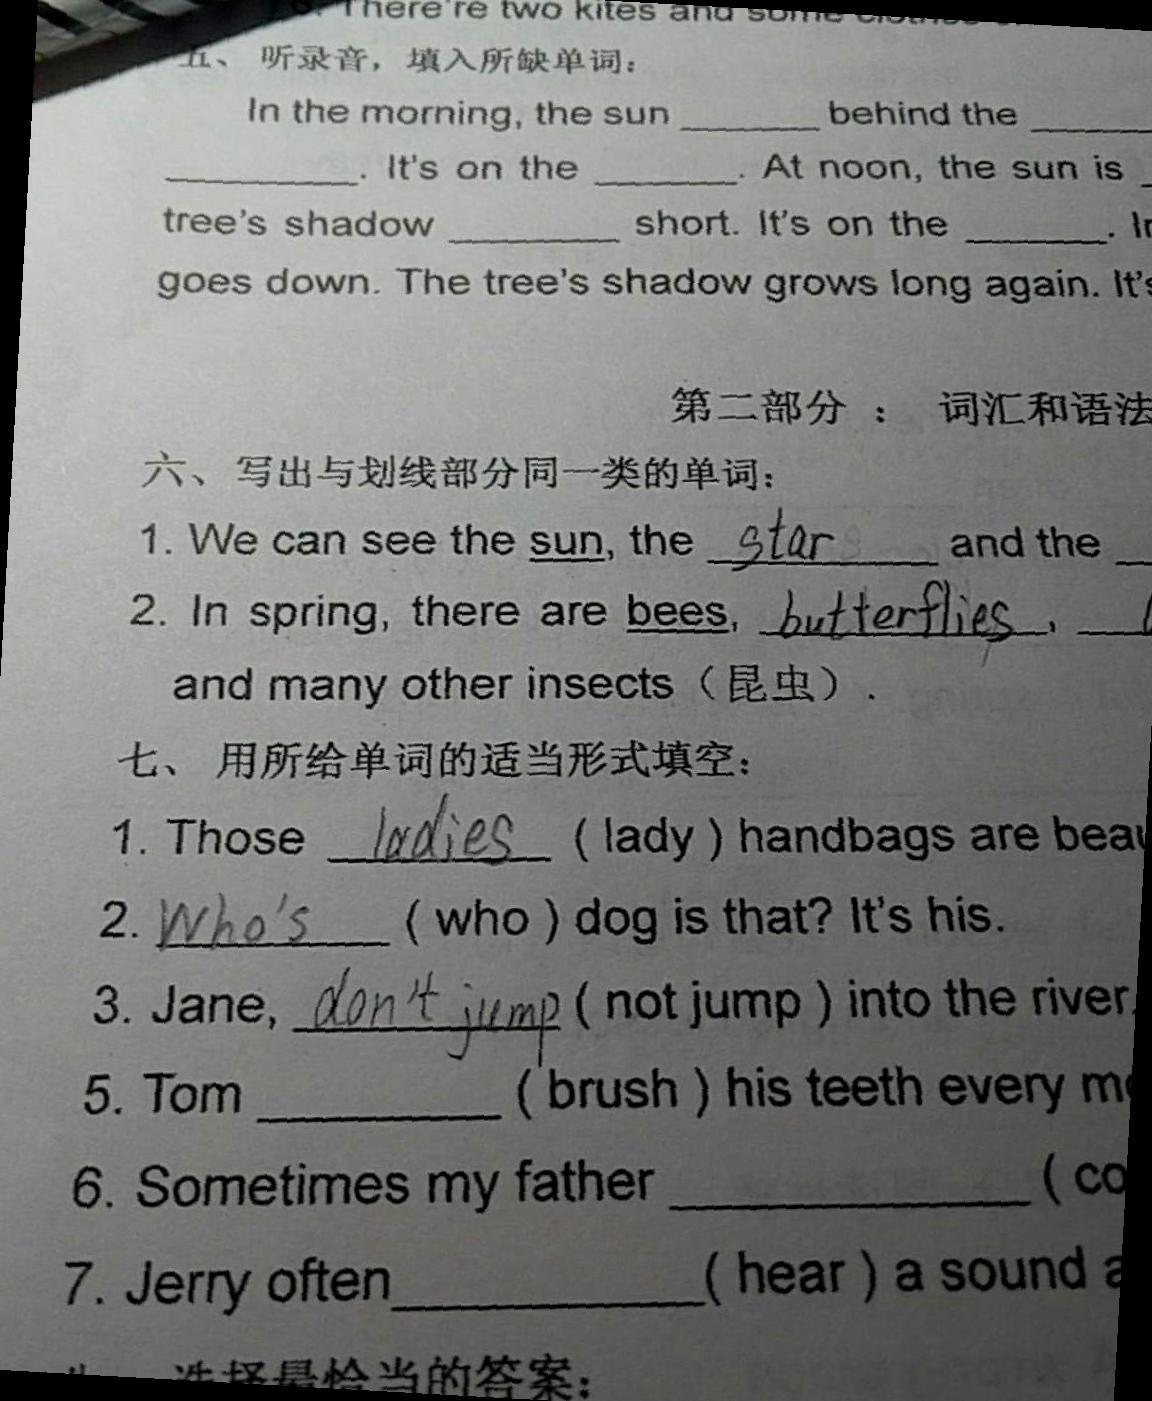 There're two kites and some clothes
五、 听录音，填入所缺单词：
In the morning, the sun _______ behind the _______
_________. It's on the _______. At noon, the sun is _
tree's shadow _________ short. It's on the _______. In
goes down. The tree's shadow grows long again. It's
第二部分 ： 词汇和语法
六、 写出与划线部分同一类的单词：
1. We can see the sun, the star and the _
2. In spring, there are bees, butterflies, _
and many other insects（昆虫）.
七、 用所给单词的适当形式填空：
1. Those ladies ( lady ) handbags are beau
2. Who's ( who ) dog is that? It's his.
3. Jane, don't jump ( not jump ) into the river.
5. Tom _________ ( brush ) his teeth every mo
6. Sometimes my father _____________ ( co
7. Jerry often___________( hear ) a sound a
选择最恰当的答案：